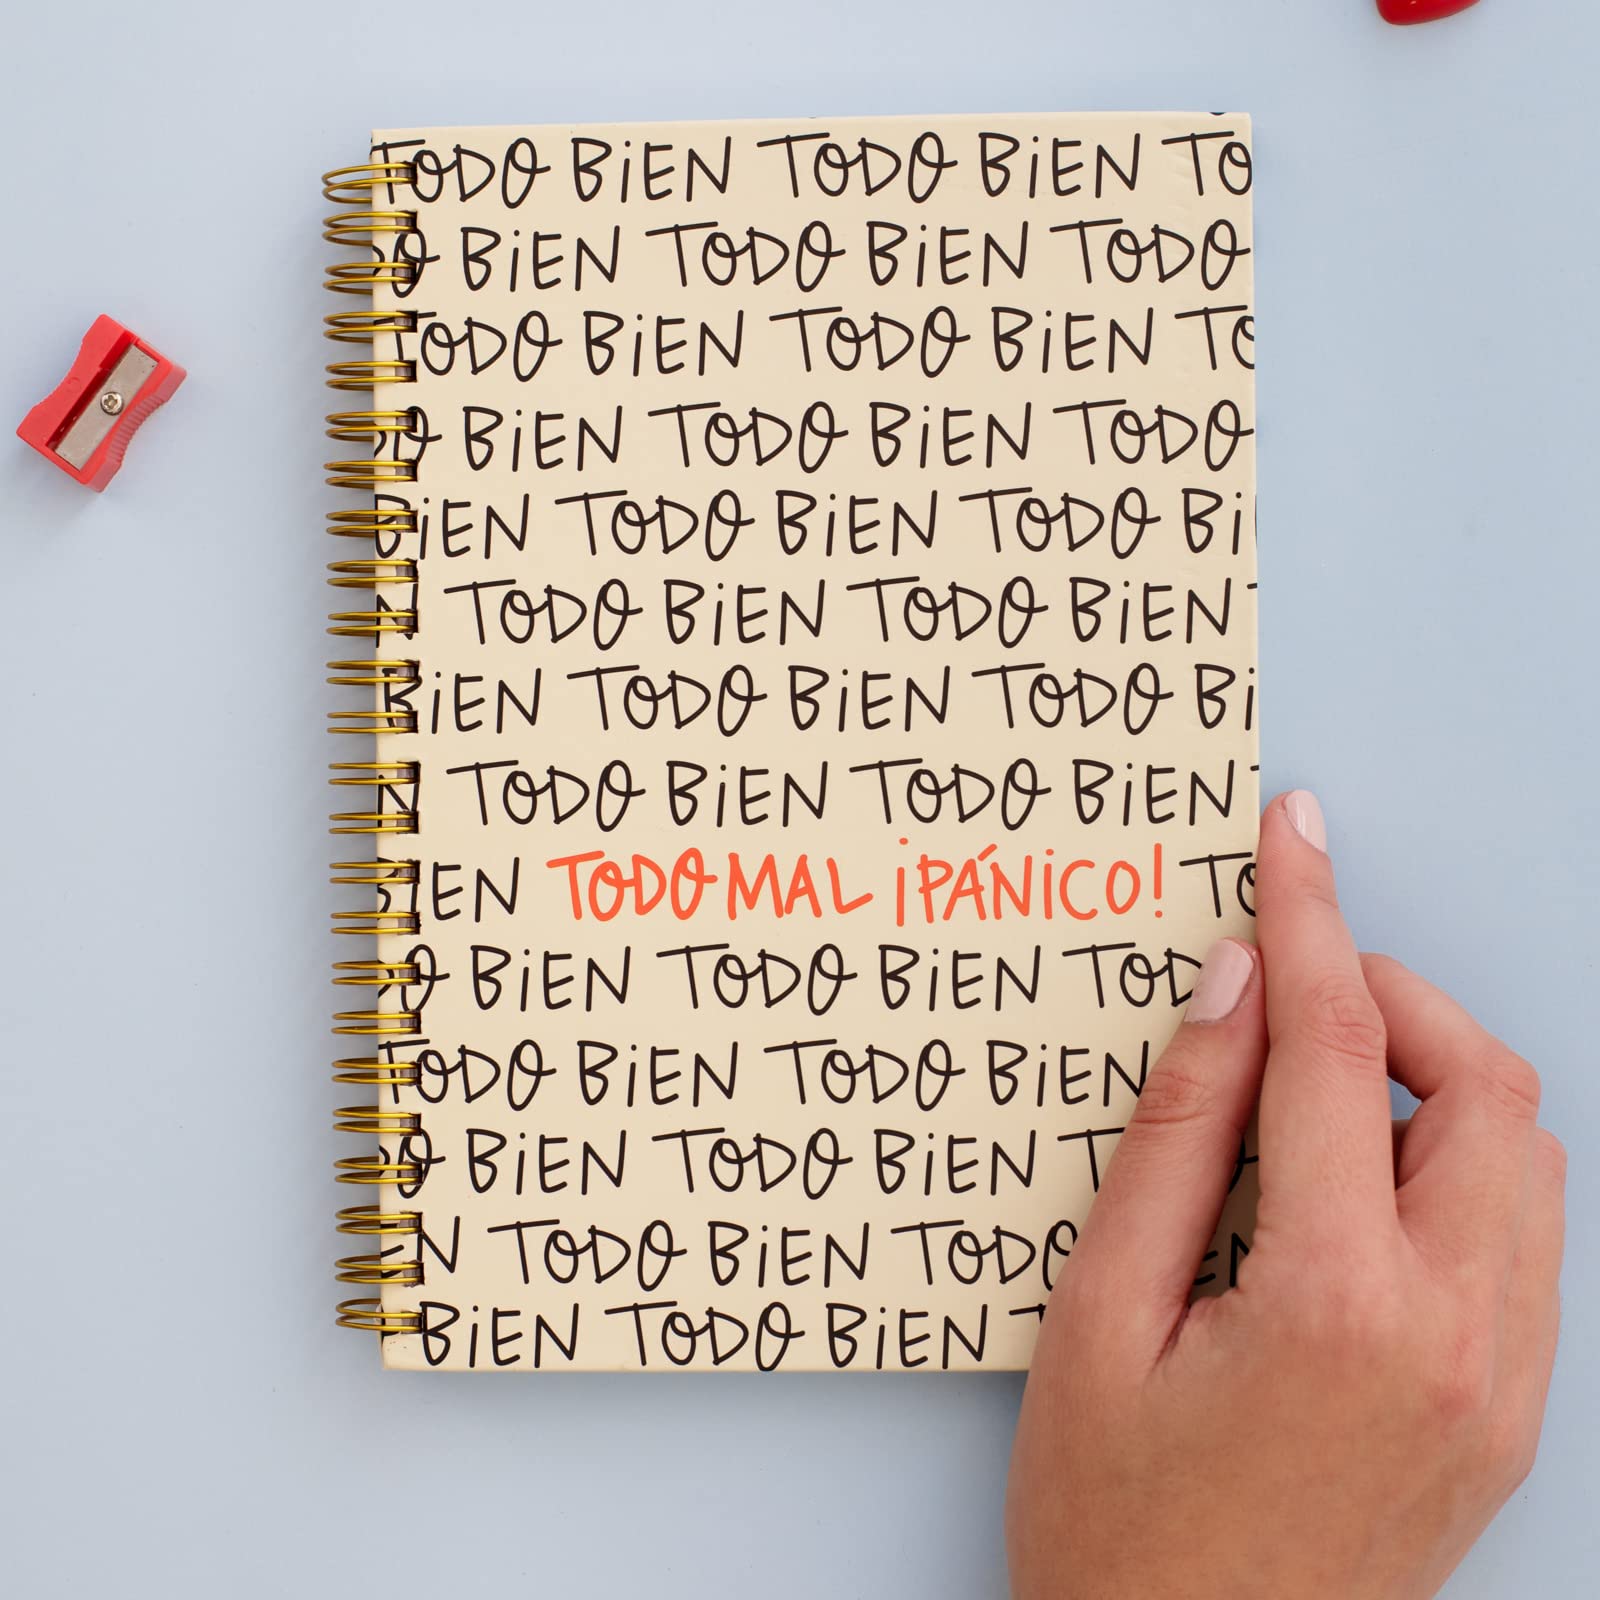 TODO BiEN TODO BiEN TO
DO BiEN TODO BiEN TODO
TODO BiEN TODO BiEN TO
DO BiEN TODO BiEN TODO
BiEN TODO BiEN TODO Bi
N TODO BiEN TODO BiEN
BiEN TODO BiEN TODO Bi
N TODO BiEN TODO BiEN
BiEN TODO MAL ¡PÁNiCO! TO
DO BiEN TODO BiEN TOD
TODO BiEN TODO BiEN
DO BiEN TODO BiEN T
EN TODO BiEN TODO EN
BiEN TODO BiEN T